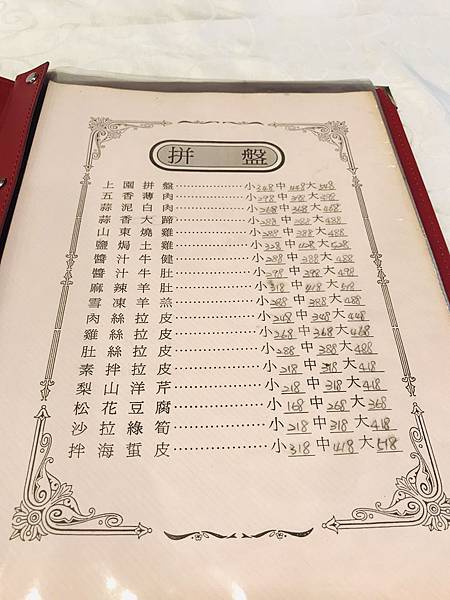 拼盤
上園拼盤…………小348中448大548
五香薄肉…………小298中398大498
蒜泥白肉…………小268中368大468
蒜香大蹄…………小288中388大488
山東燒雞…………小288中388大488
鹽焗土雞…………小328中428大528
醬汁牛健…………小288中388大488
醬汁牛肚…………小298中398大498
麻辣羊肚…………小318中418大518
雪凍羊羔…………小288中388大488
肉絲拉皮…………小248中348大448
雞絲拉皮…………小268中368大468
肚絲拉皮…………小288中388大488
素拌拉皮…………小218中318大418
梨山洋芹…………小218中318大418
松花豆腐…………小168中268大368
沙拉綠筍…………小218中318大418
拌海蜇皮…………小318中418大518